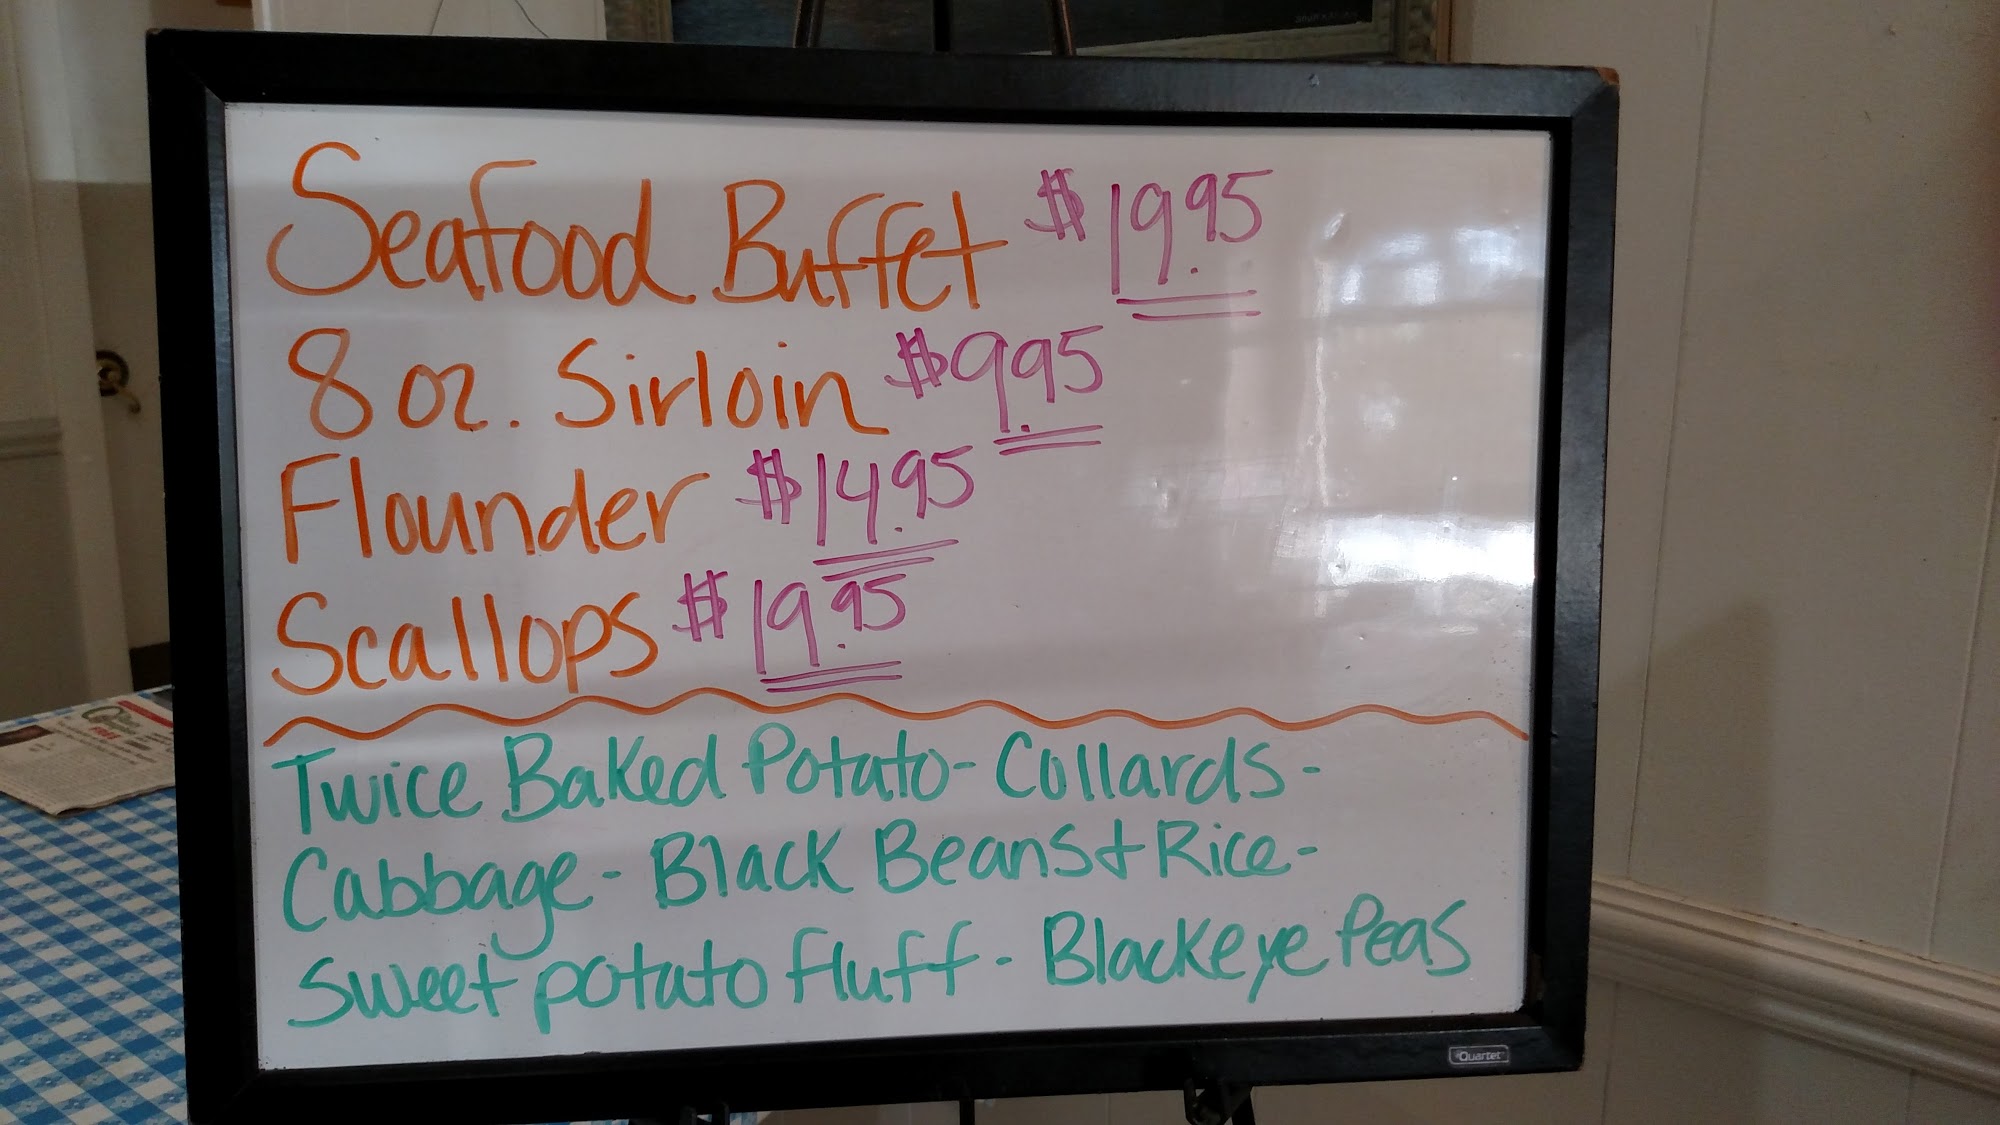 Seafood Buffet $19.95
8 oz. Sirloin $9.95
Flounder $14.95
Scallops $19.95
Twice Baked Potato - Collards -
Cabbage - Black Beans & Rice -
Sweet potato fluff - Blackeye Peas
Quartet
FREE